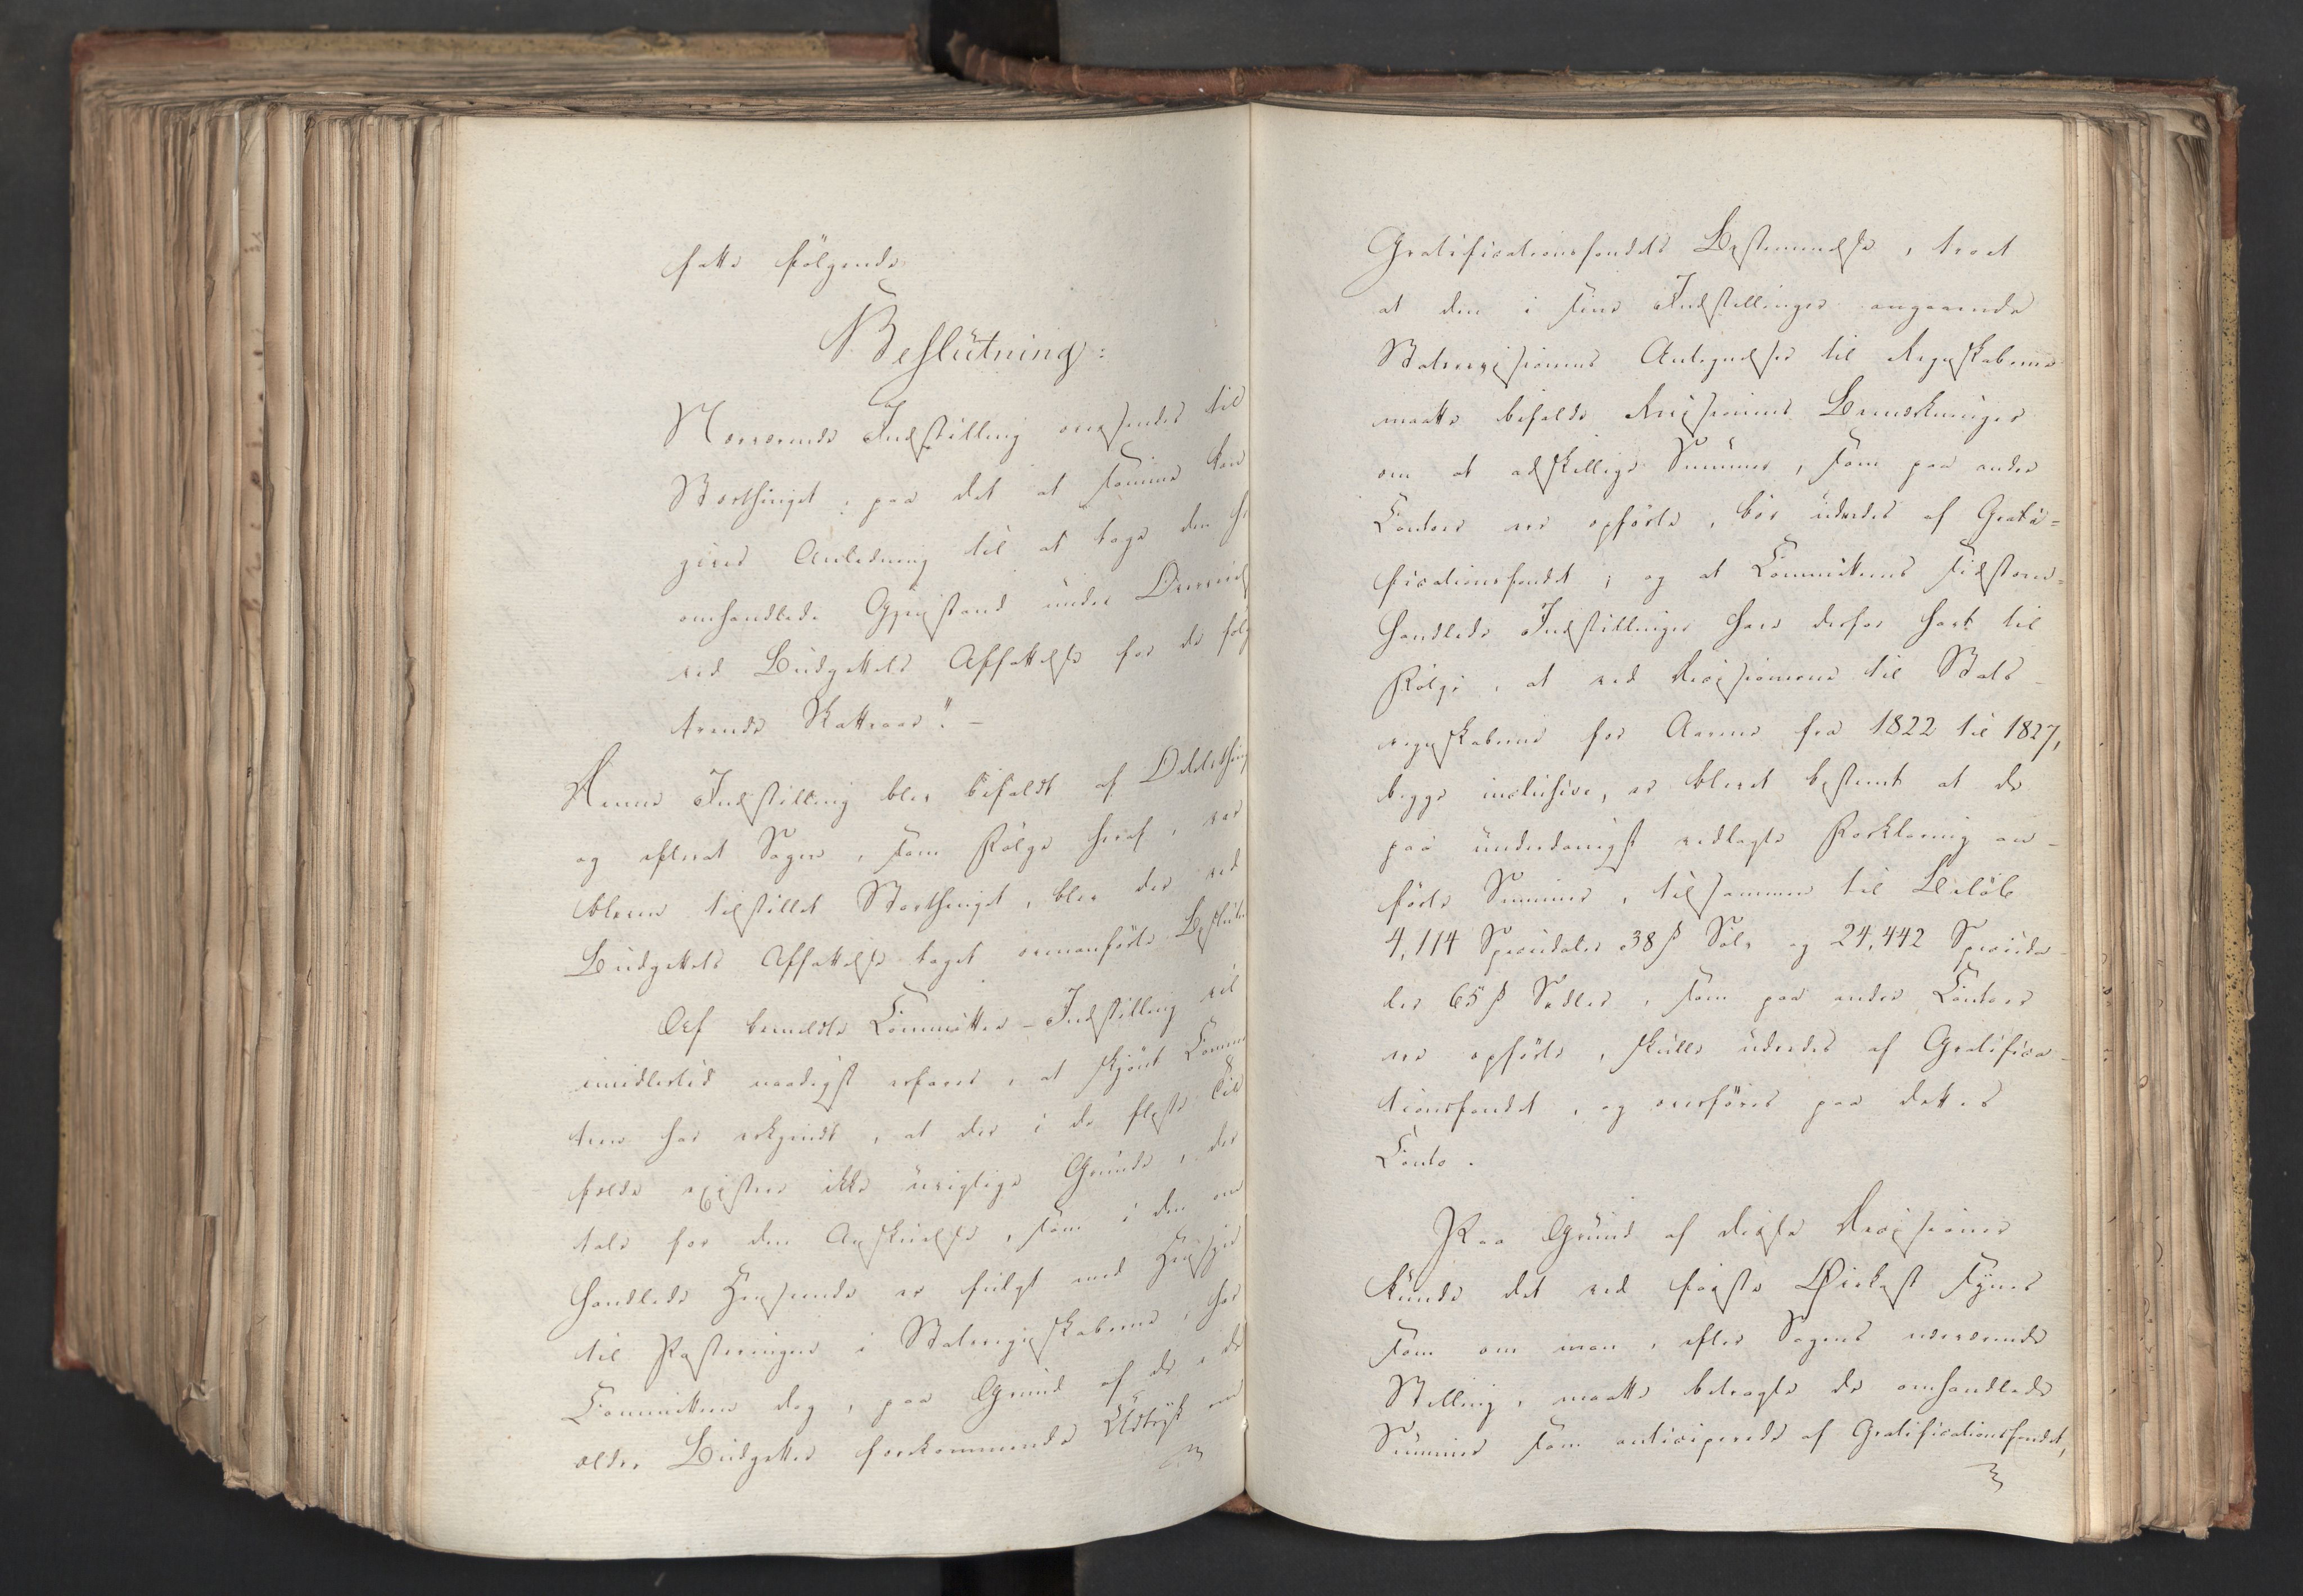 fatte følgende
Beslutning:
Nærværende Indstilling oversendes til
Storthinget, paa det at samme kan
giver Anledning til at tage den he
omhandlede Gjenstand under Overveiel
ved Budgettets Affattelse for de følg
trende Skatteaar". —
Denne Indstilling blev bifaldt af Odelsthing
og efterat Sagen, som Følge heraf, var
bleven tilstillet Storthinget, blev der ved
Budgettets Affattelse taget ovenanførte Beslutn
Af bemeldte Committee-Indstilling vil
imidlertid naadigst erfares, at skjønt Commi
teen har erkjendt, at der i de fleste Til
fælde existere ikke uvigtige Grunde, der
tale for den Anskuelse, som i den om
handlede Henseende er fulgt med Hensyn
til Posteringen i Statsregnskaberne, har
Committeen dog, paa Grund af de i de
ældre Budgetter forekommende Udtryk om
Gratificationsfondets Bestemmelse, troet
at den i sine Indstillinger angaaende
Statsrevisionens Antegnelser til Regnskaberne
maatte bifalde Revisionens Bemærkninger
om at adskillige Summer, som paa andre
Contoer ere opførte, bør udredes af Grati=
ficationsfondet; og at Committeens sidstom=
handlede Indstillinger have derfor havt til
Følge, at ved Decisionerne til Stats-
regnskaberne for Aarene fra 1822 til 1827,
begge inclusive, er blevet bestemt at de
paa underdanigst vedlagte Forklaring an-
førte Summer, tilsammen til Beløb
4,114 Speciedaler 38 ß Sølv og 24,442 Specieda-
ler 65 ß Sedler, som paa andre Contoer
ere opførte, skulle udredes af Gratifica-
tionsfondet, og overføres paa dettes
Conto.
Paa Grund af disse Decisioner
kunde det ved første Øiekast synes
som om man, efter Sagens nærværende
Stilling, maatte betragte de omhandlede
Summer som anticiperede af Gratificationsfondet,